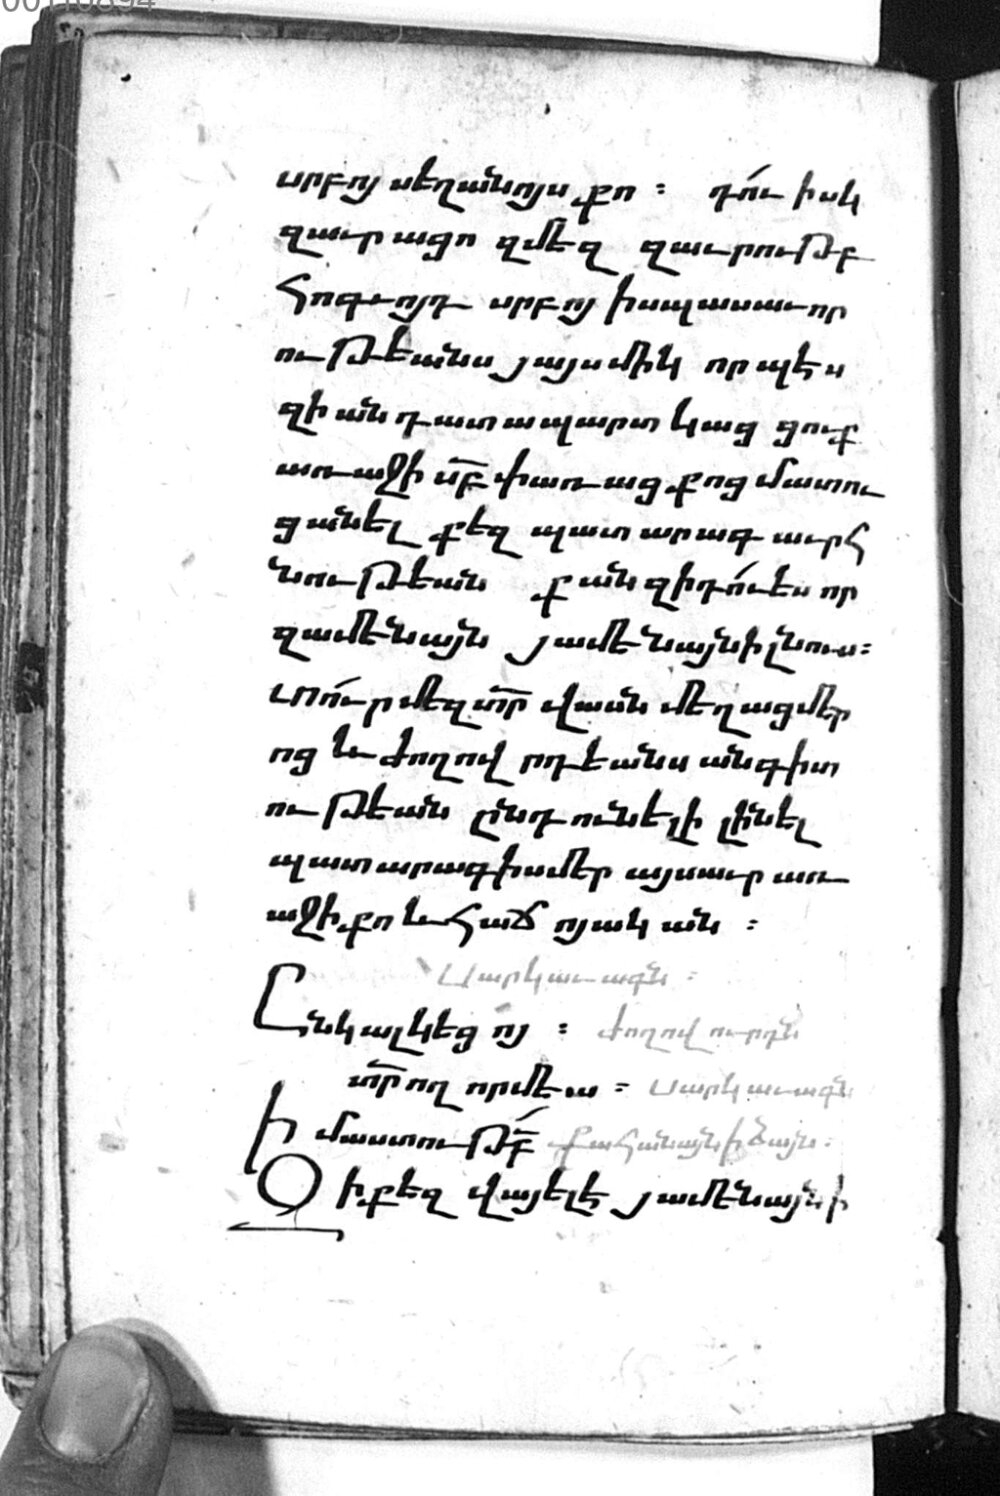 սրբոյ սեղանոյս քո ։ դո՛ւ իսկ
զաւրացո զմեզ զաւրութբ
հոգւոյդ սրբոյ ի սպասաւոր
ութեանս յայսմիկ որպէս
զի անդատապարտ կացցուք
առաջի ս՟բ փառաց քոց մատու
ցանել քեզ պատարագ աւրհ
նութեան քանզի դո՛ւ ես որ
զամենայն յամենայնի լնուս։
Լո՛ւր մեզ տ՟ր վասն մեղաց մեր
ոց և ժողովրդեանս անգիտ
ութեան ընդունելի լինել
պատարագիս մեր այսաւր առ
աջի քո և հաճոյական ։
Սարկաւագն ։
Ընկալ կեցոյ ։ ժողովուրդն
տ՟ր ողորմեա ։ Սարկաւագն
Իմաստութբ՟ Քահանայն ի ձայն ։
Զի քեզ վայելէ յամենայնի